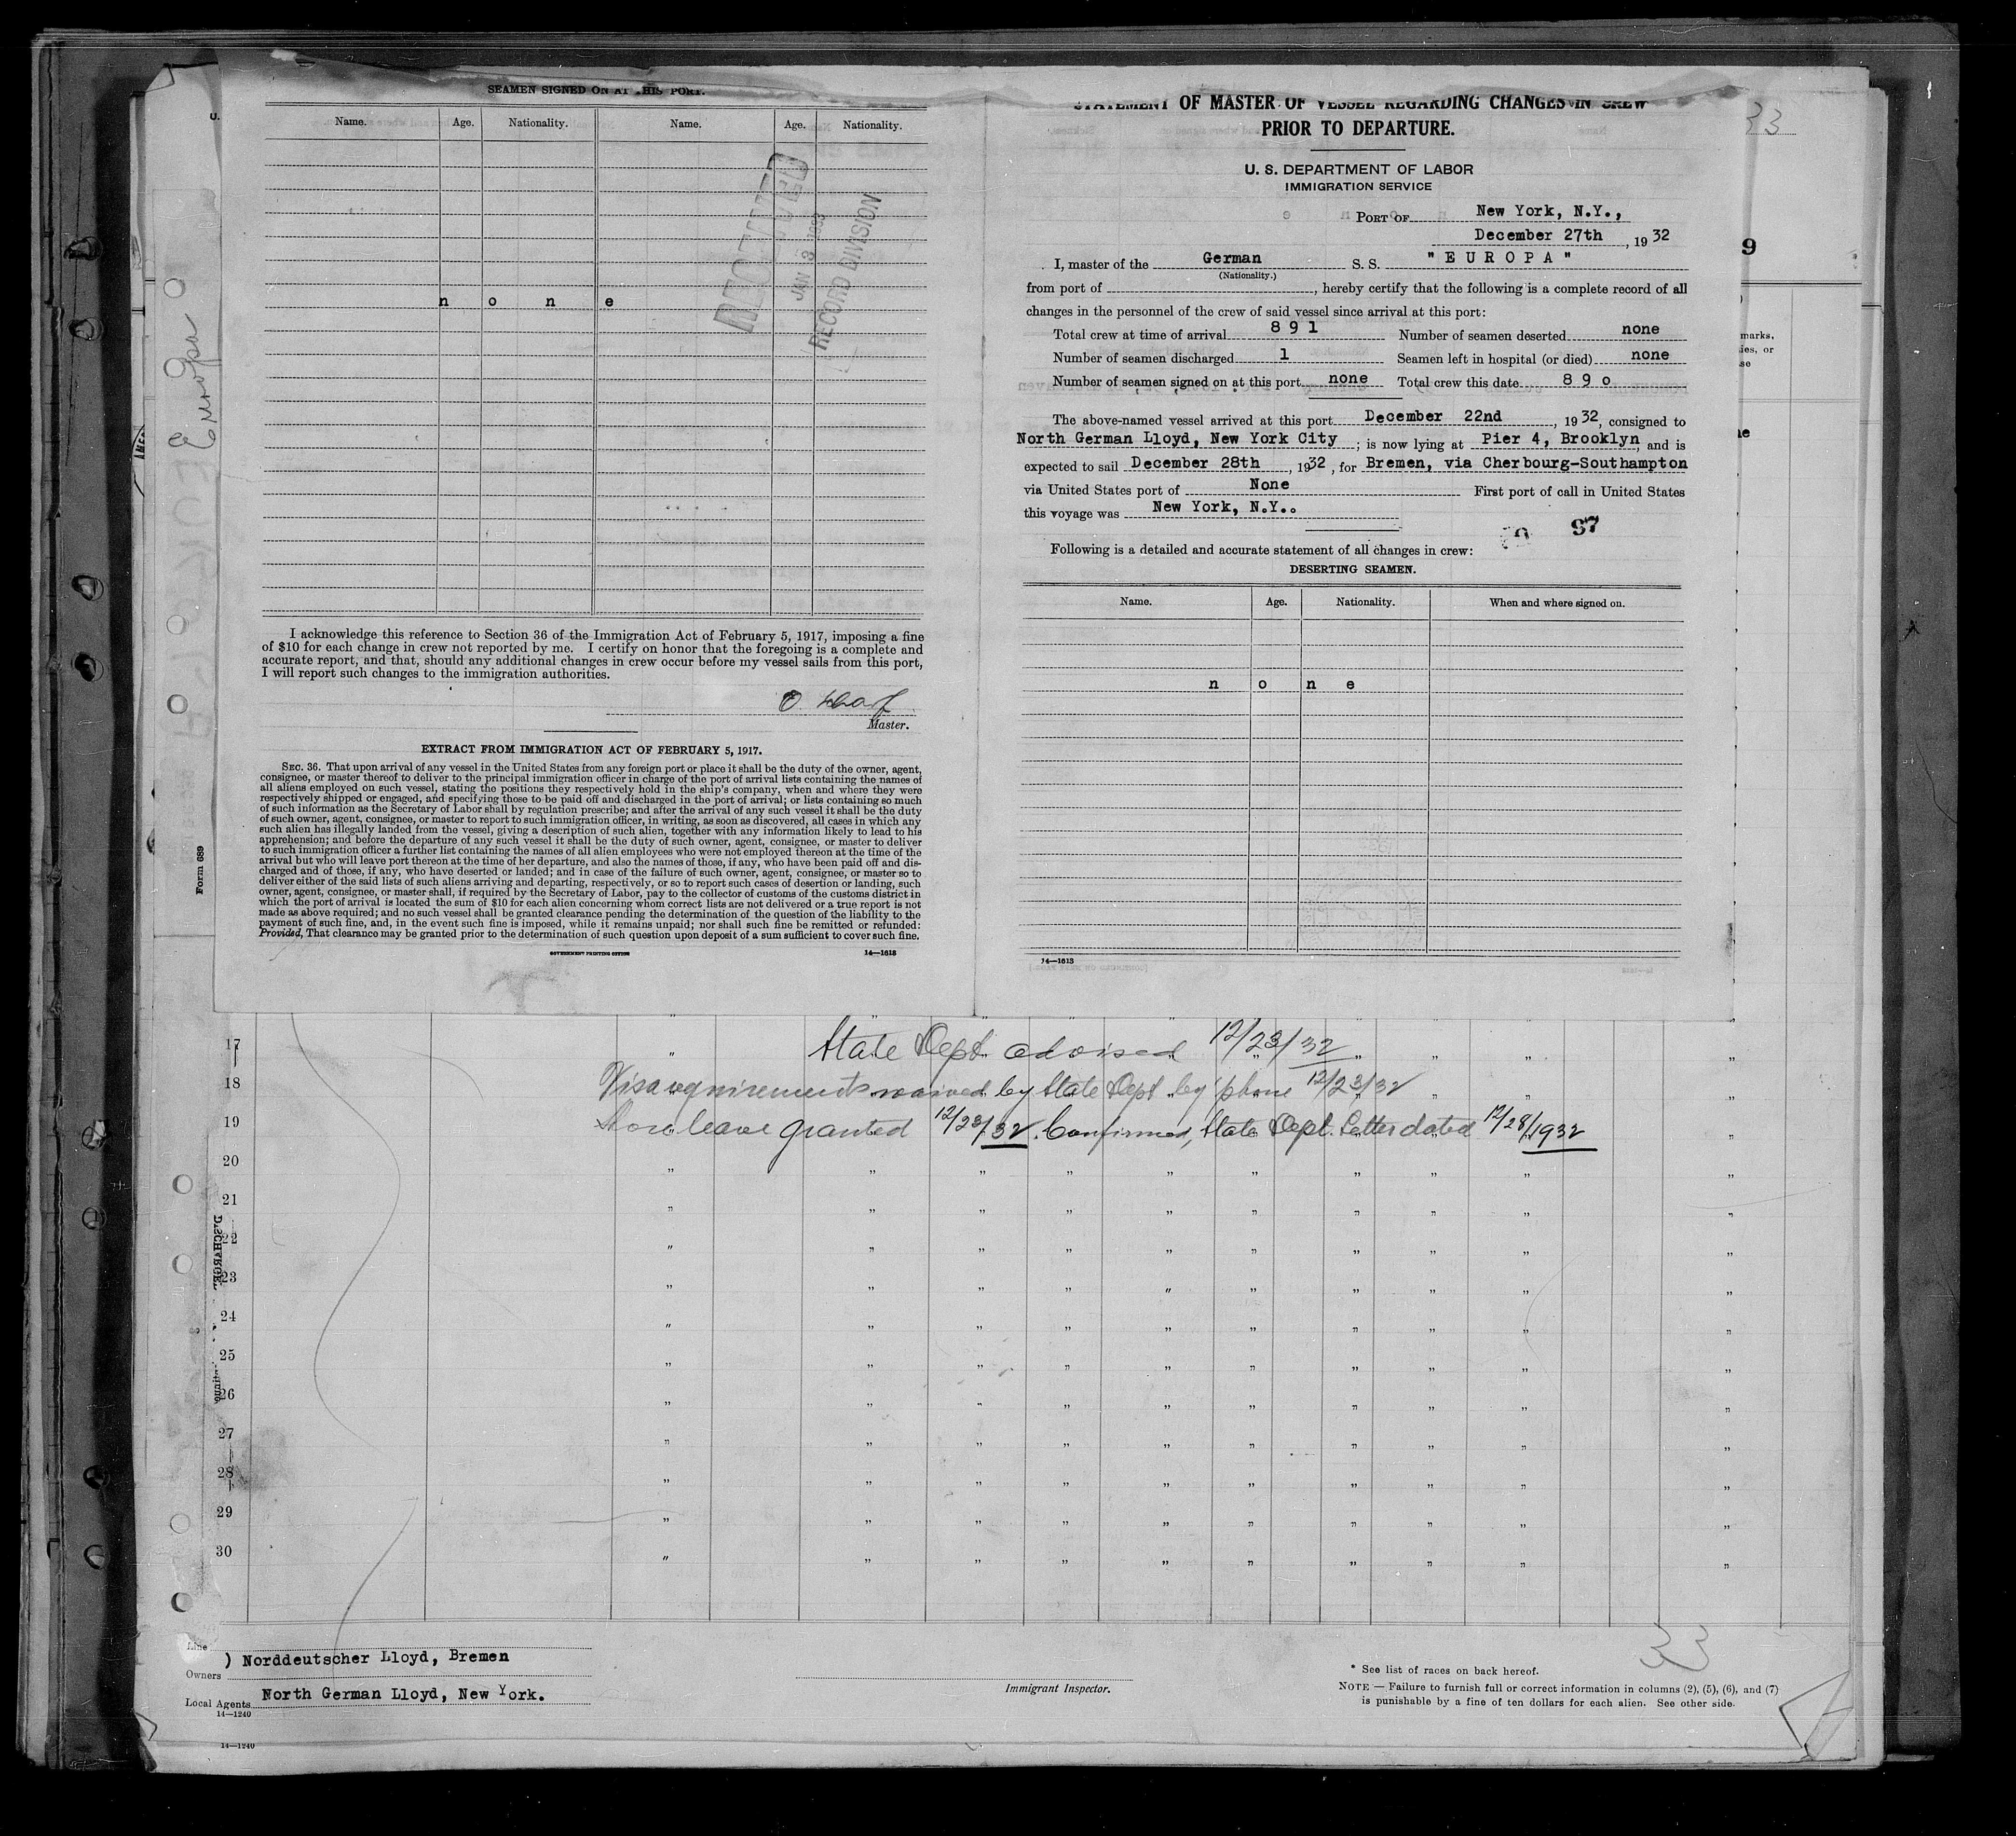 SEAMEN SIGNED ON AT THIS PORT.
Name. Age. Nationality. Name. Age. Nationality.
n o n e
JAN 3 1933
RECORD DIVISION
Europa
I acknowledge this reference to Section 36 of the Immigration Act of February 5, 1917, imposing a fine
of $10 for each change in crew not reported by me. I certify on honor that the foregoing is a complete and
accurate report, and that, should any additional changes in crew occur before my vessel sails from this port,
I will report such changes to the immigration authorities.
O. Scharf
Master.
EXTRACT FROM IMMIGRATION ACT OF FEBRUARY 5, 1917.
SEC. 36. That upon arrival of any vessel in the United States from any foreign port or place it shall be the duty of the owner, agent,
consignee, or master thereof to deliver to the principal immigration officer in charge of the port of arrival lists containing the names of
all aliens employed on such vessel, stating the positions they respectively hold in the ship's company, when and where they were
respectively shipped or engaged, and specifying those to be paid off and discharged in the port of arrival; or lists containing so much
of such information as the Secretary of Labor shall by regulation prescribe; and after the arrival of any such vessel it shall be the duty
of such owner, agent, consignee, or master to report to such immigration officer, in writing, as soon as discovered, all cases in which any
such alien has illegally landed from the vessel, giving a description of such alien, together with any information likely to lead to his
apprehension; and before the departure of any such vessel it shall be the duty of such owner, agent, consignee, or master to deliver
to such immigration officer a further list containing the names of all alien employees who were not employed thereon at the time of the
arrival but who will leave port thereon at the time of her departure, and also the names of those, if any, who have been paid off and dis-
charged and of those, if any, who have deserted or landed; and in case of the failure of such owner, agent, consignee, or master so to
deliver either of the said lists of such aliens arriving and departing, respectively, or so to report such cases of desertion or landing, such
owner, agent, consignee, or master shall, if required by the Secretary of Labor, pay to the collector of customs of the customs district in
which the port of arrival is located the sum of $10 for each alien concerning whom correct lists are not delivered or a true report is not
made as above required; and no such vessel shall be granted clearance pending the determination of the question of the liability to the
payment of such fine, and, in the event such fine is imposed, while it remains unpaid; nor shall such fine be remitted or refunded:
Provided, That clearance may be granted prior to the determination of such question upon deposit of a sum sufficient to cover such fine.
GOVERNMENT PRINTING OFFICE 14—1613
Form 689
STATEMENT OF MASTER OF VESSEL REGARDING CHANGES IN CREW
PRIOR TO DEPARTURE.
U. S. DEPARTMENT OF LABOR
IMMIGRATION SERVICE
PORT OF New York, N.Y.,
December 27th, 1932
I, master of the German S. S. "EUROPA"
(Nationality.)
from port of , hereby certify that the following is a complete record of all
changes in the personnel of the crew of said vessel since arrival at this port:
Total crew at time of arrival 891 Number of seamen deserted none
Number of seamen discharged 1 Seamen left in hospital (or died) none
Number of seamen signed on at this port none Total crew this date 89o
The above-named vessel arrived at this port December 22nd, 1932, consigned to
North German Lloyd, New York City; is now lying at Pier 4, Brooklyn, and is
expected to sail December 28th, 1932, for Bremen, via Cherbourg-Southampton
via United States port of None First port of call in United States
this voyage was New York, N.Y..
97
Following is a detailed and accurate statement of all changes in crew:
DESERTING SEAMEN.
Name. Age. Nationality. When and where signed on.
n o n e
14—1613
33
9
17 State Dept. advised 12/23/32
18 Visa requirements waived by State Dept by 'phone 12/23/32
19 Shore leave granted 12/23/32. Confirmed, State Dept. Letter dated 12/28/1932
20 " " " " " " " " " "
21 " " " " " " " " " "
22 " " " " " " " " " "
23 " " " " " " " " " "
24 " " " " " " " " " "
25 " " " " " " " " " "
26 " " " " " " " " " "
27 " " " " " " " " " "
28 " " " " " " " " " "
29 " " " " " " " " " "
30 " " " " " " " " " "
Line
Owners ) Norddeutscher Lloyd, Bremen
Local Agents North German Lloyd, New York.
14—1240
14—1240
Immigrant Inspector.
33
* See list of races on back hereof.
NOTE — Failure to furnish full or correct information in columns (2), (5), (6), and (7)
is punishable by a fine of ten dollars for each alien. See other side.